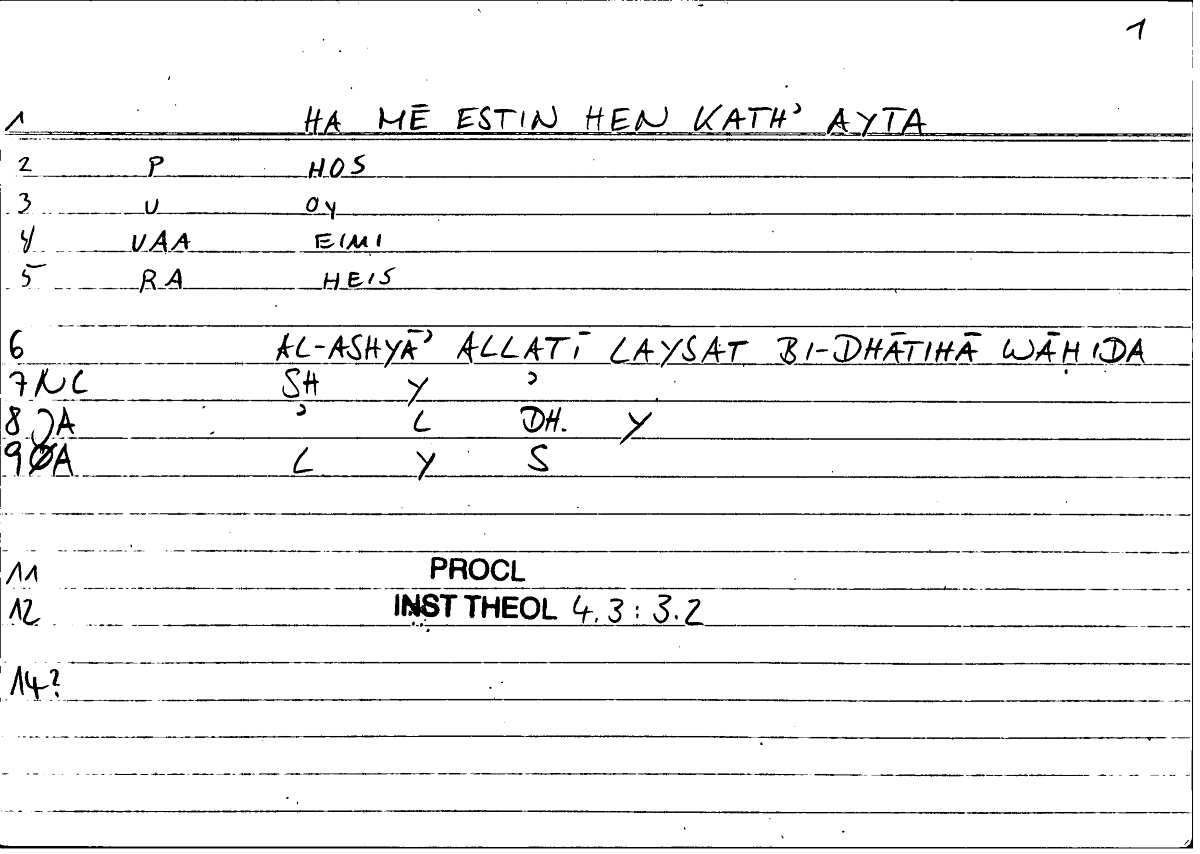 1
1 HA MĒ ESTIN HEN KATH' AYTA
2 P HOS
3 U OY
4 VAA EIMI
5 RA HEIS
6 AL-ASHYĀ' ALLATĪ LAYSAT BI-DHĀTIHĀ WĀḤIDA
7 NC SH Y '
8 JA ' L DH. Y
9 ØA L Y S
11 PROCL
12 INST THEOL 4.3:3.2
14?